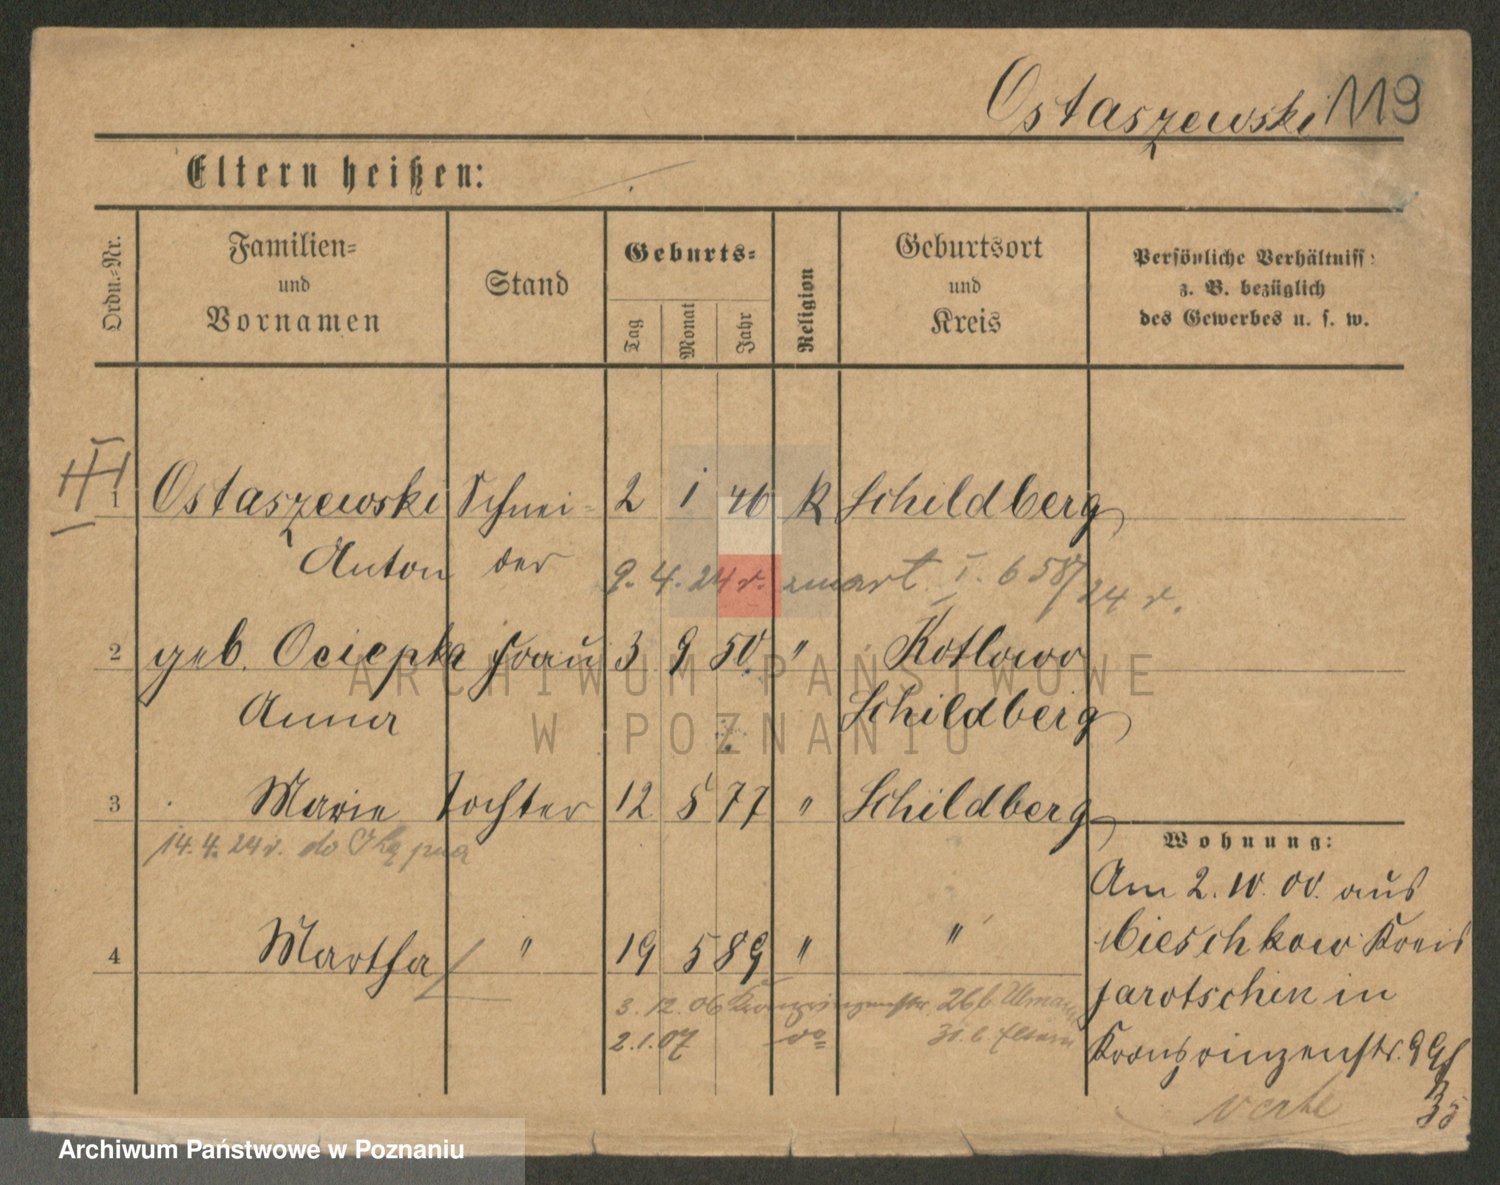 Ostaszewski 119
Eltern heißen:
Ordn.=Nr.
Familien=
und
Vornamen
Stand
Geburts=
Tag
Monat
Jahr
Religion
Geburtsort
und
Kreis
Persönliche Verhältniss:
z. B. bezüglich
des Gewerbes u. s. w.
1 Ostaszewski Schnei= 2 1 46 R Schildberg
Anton der
9. 4. 24 r. zmarł I. 658/24 r.
2 geb. Ociepka Frau 3 9 50. " Kotlowo
Anna Schildberg
3 Marie Tochter 12 5 77 " Schildberg
14. 4. 24 r. do
4 Martha " 19 5 89 " "
3. 12. 06 Kronprinzenstr. 26 b
2. 1. 07 do
Wohnung:
Am 2. 10. 00. aus
Mieschkow Kreis
Jarotschin in
Kronprinzenstr. 99
35
ARCHIWUM PAŃSTWOWE
W POZNANIU
Archiwum Państwowe w Poznaniu